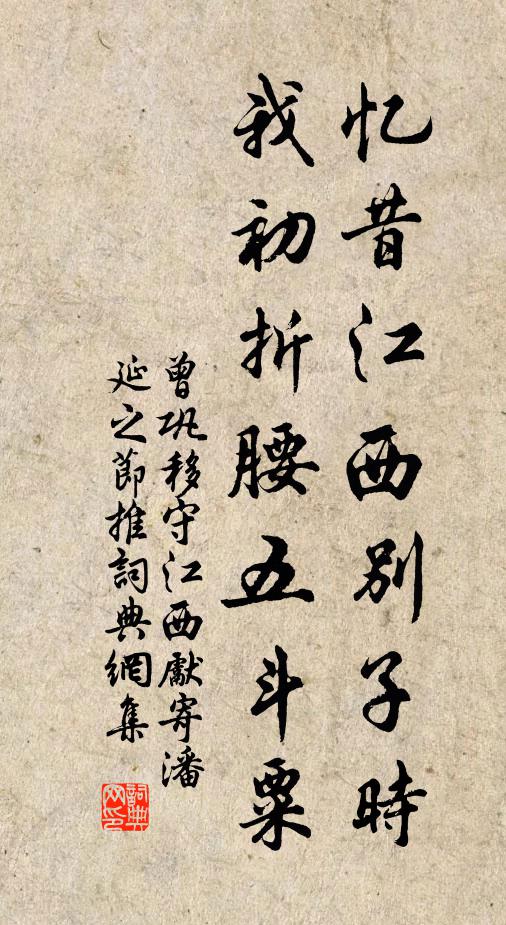 忆昔江西别子時
我初折腰五斗粟
曾巩移守江西獻寄潘
延之節推詞典網集
詞典网印